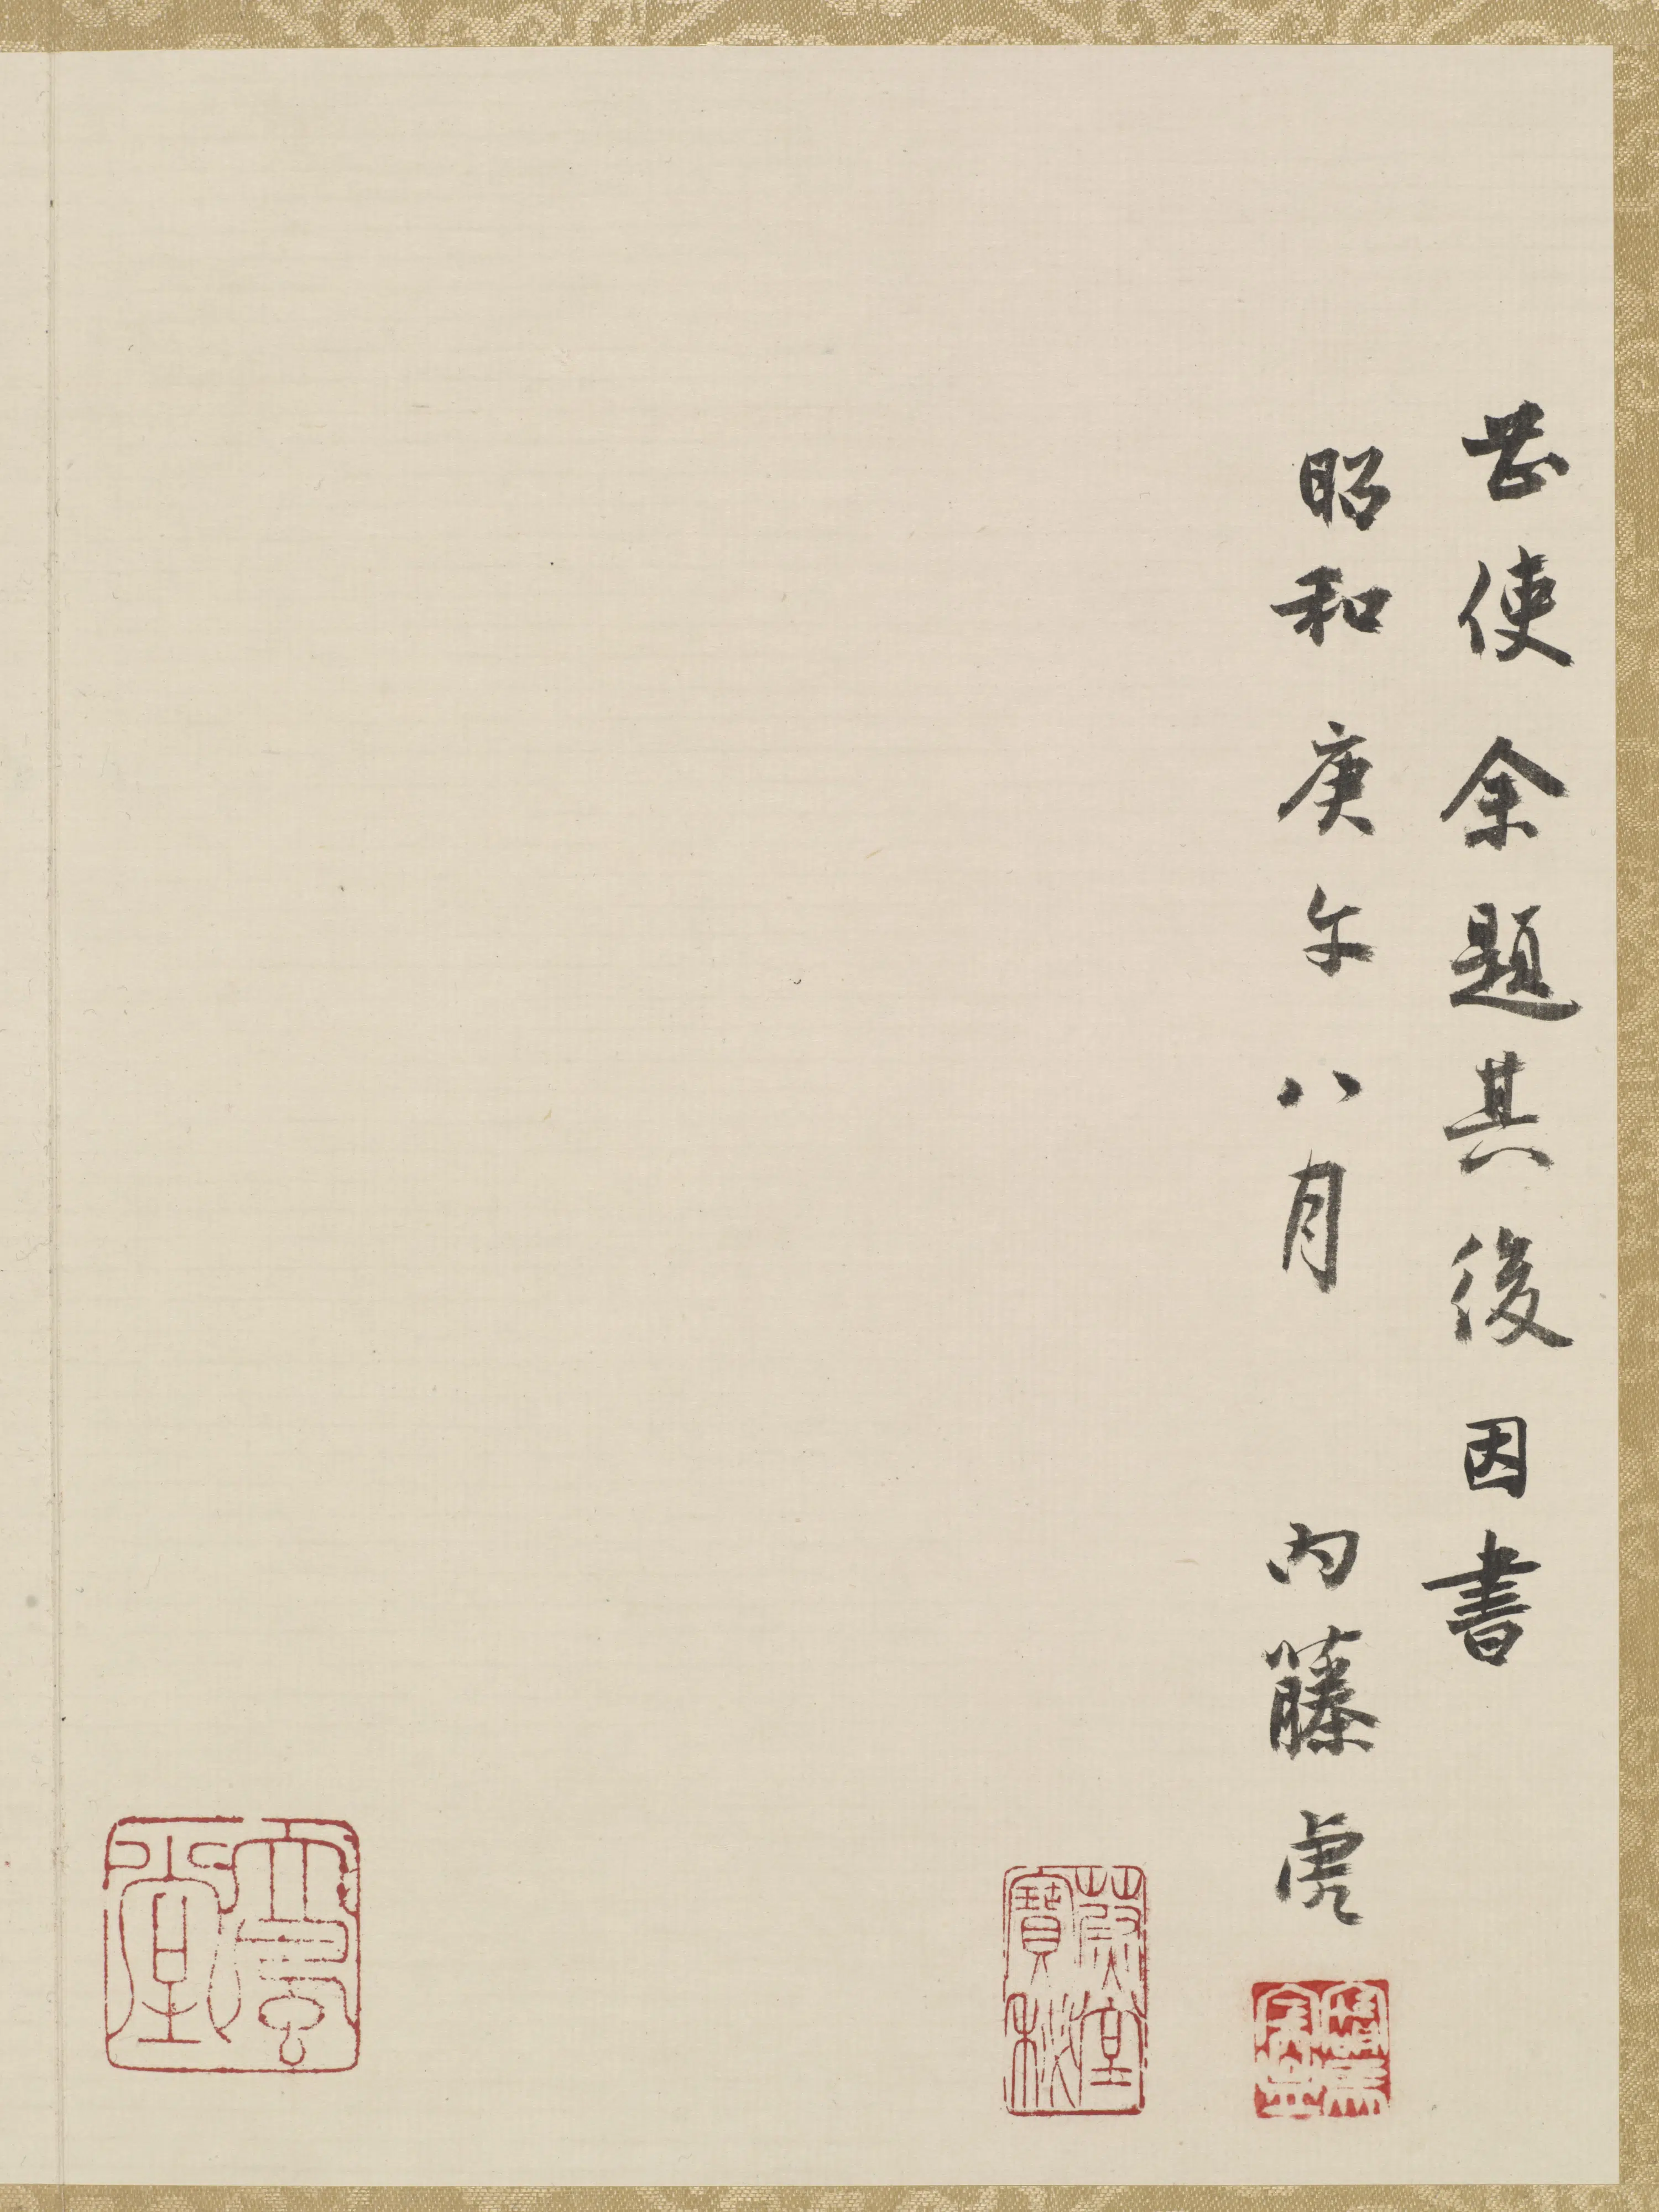 使余題其後因書
昭和庚午八月 内藤虎
蔚堂
寶秘